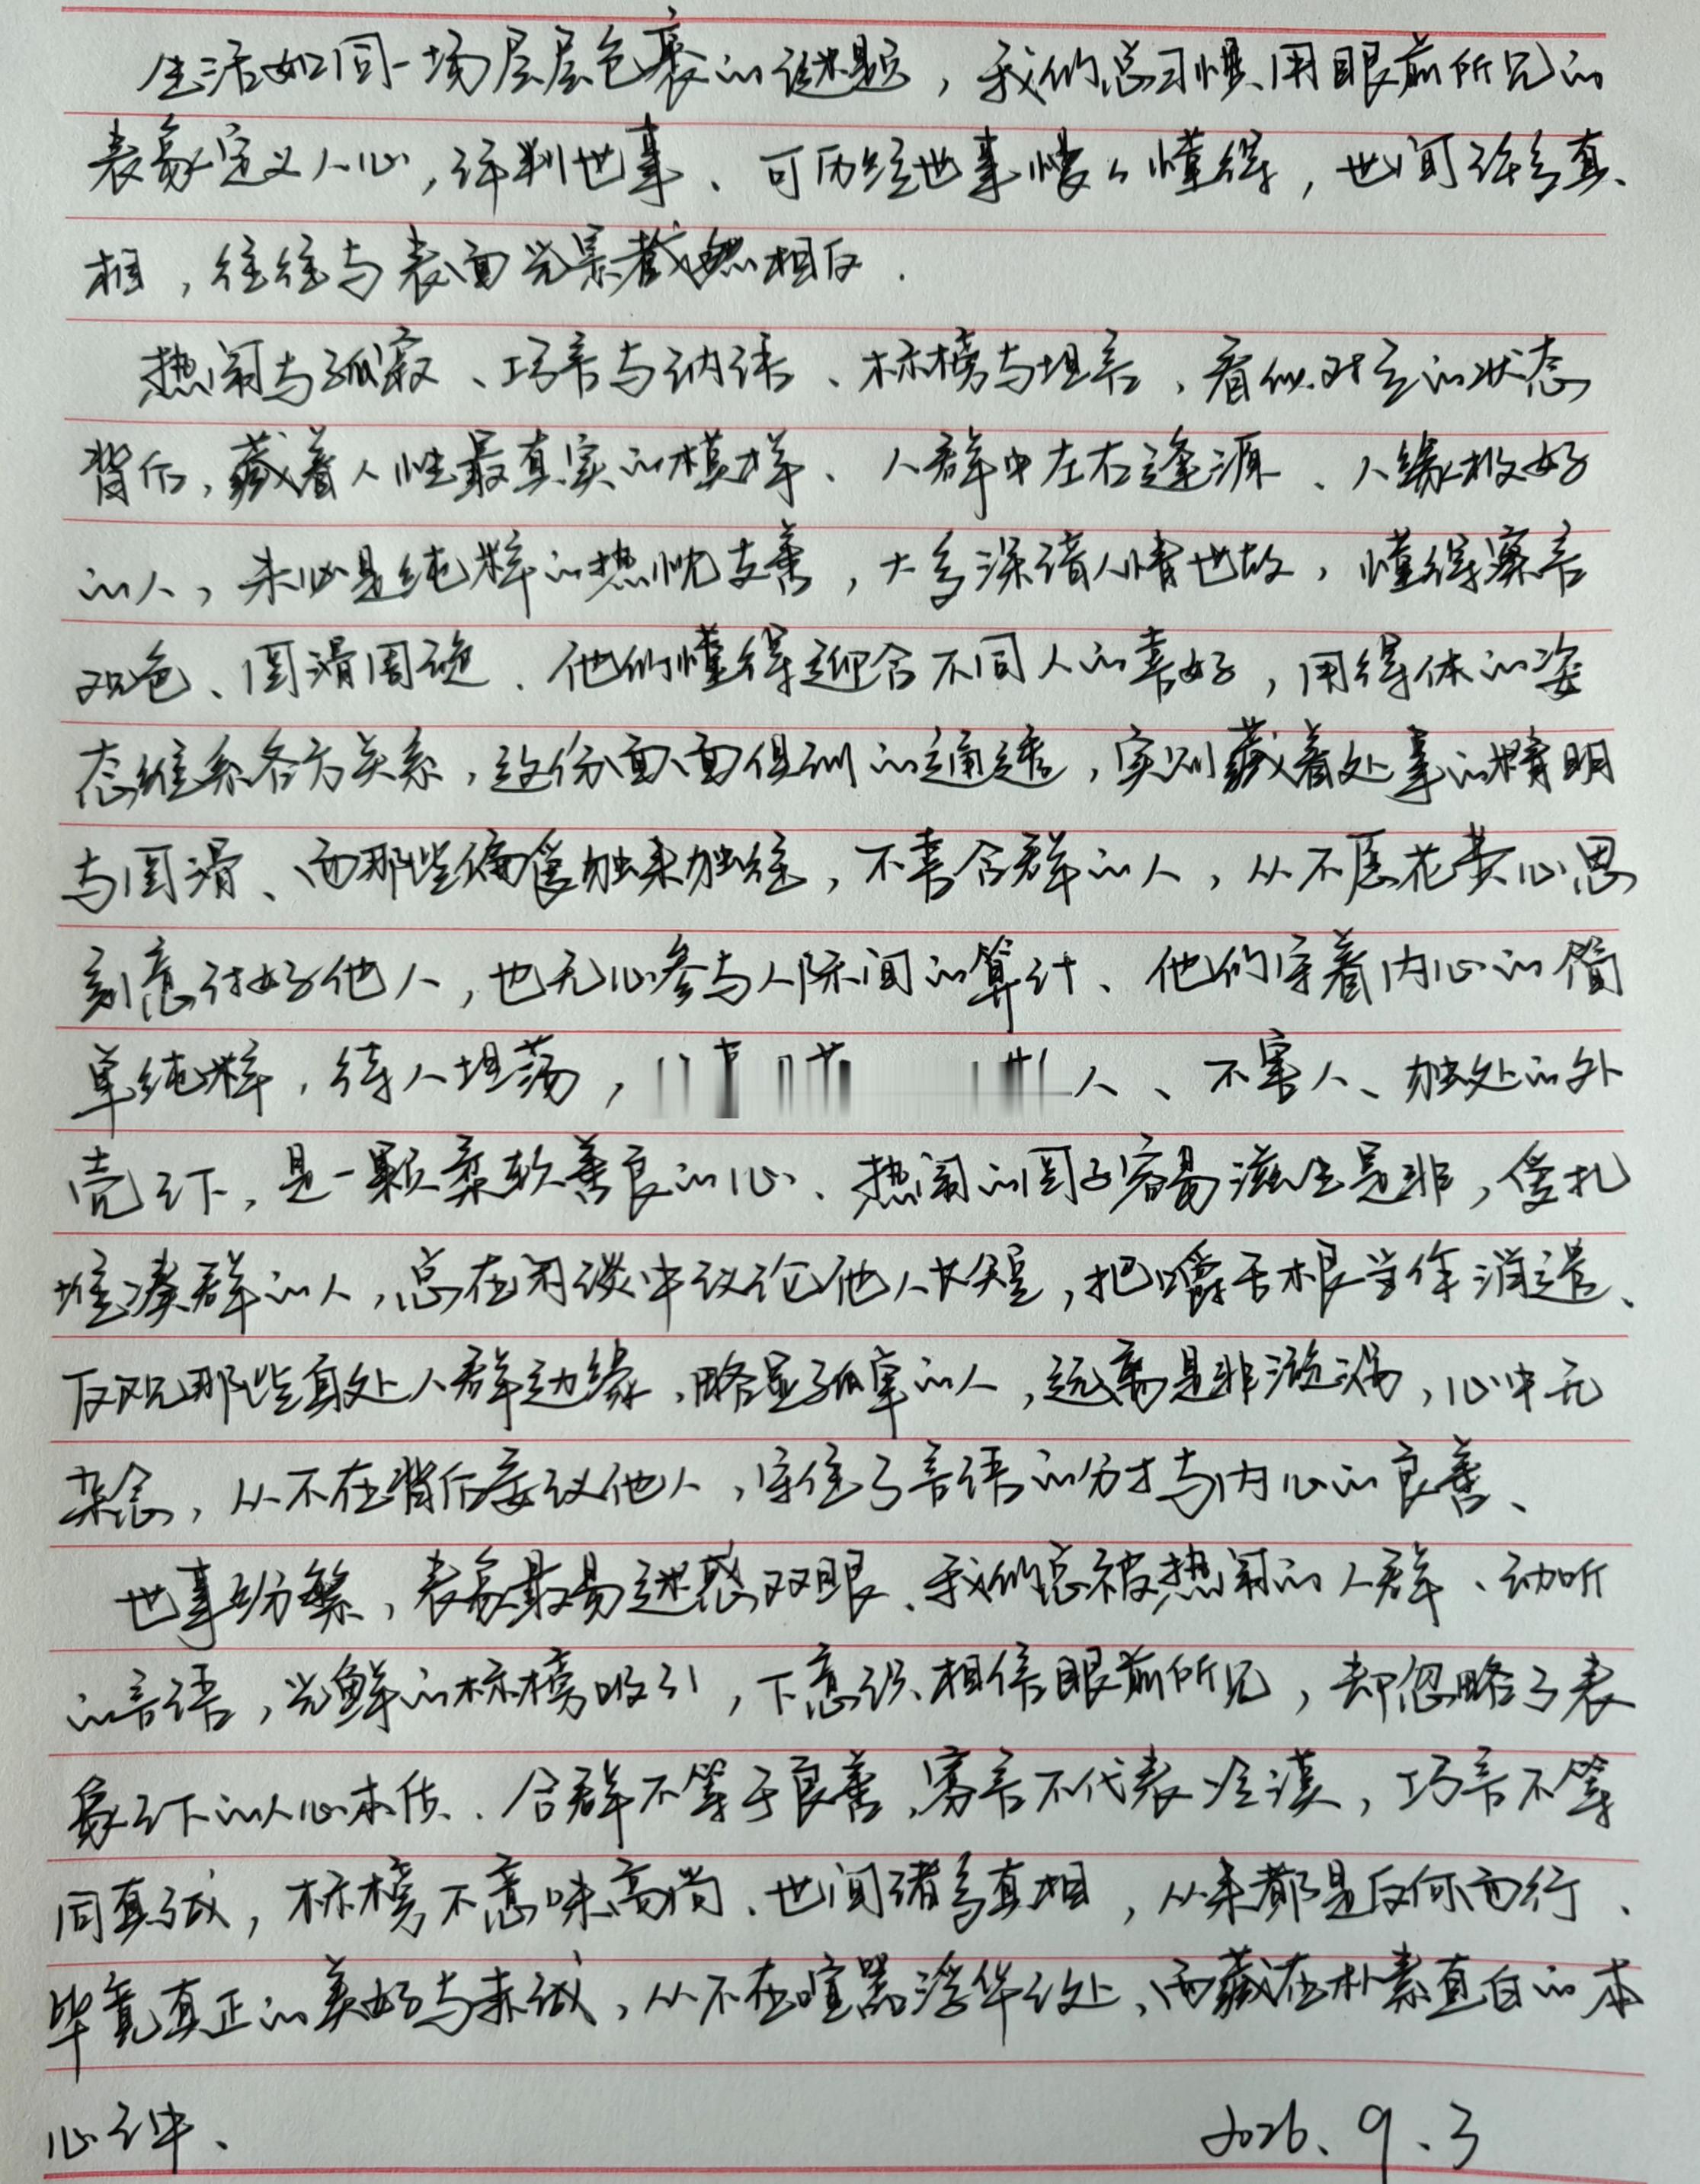 生活如同一场层层包裹的谜题，我们总习惯用眼前所见的
表象定义人心，评判世事、可历经世事慢慢懂得，世间许多真
相，往往与表面光景截然相反．
热闹与孤寂、巧言与讷语、标榜与坦言，看似对立的状态
背后，藏着人性最真实的模样、人群中左右逢源、人缘极好
的人，未必是纯粹的热忱友善，大多深谙人情世故，懂得察言
观色、圆滑周旋．他们懂得迎合不同人的喜好，用得体的姿
态维系各方关系，这份面面俱到的通透，实则藏着处事的精明
与圆滑、而那些偏爱独来独往，不喜合群的人，从不愿花费心思
刻意讨好他人，也无心参与人际间的算计、他们守着内心的简
单纯粹，待人坦荡，人、不害人、独处的外
壳之下，是一颗柔软善良的心、热闹的圈子容易滋生是非，爱扎
堆凑群的人，总在闲谈中议论他人长短，把嚼舌根当作消遣、
反观那些身处人群边缘，略显孤单的人，远离是非漩涡，心中无
杂念，从不在背后妄议他人，守住了言语的分寸与内心的良善、
世事纷繁，表象最易迷惑双眼、我们总被热闹的人群、动听
的言语，光鲜的标榜吸引，下意识相信眼前所见，却忽略了表
象之下的人心本质．合群不等于良善，寡言不代表冷漠，巧言不等
同真诚，标榜不意味高尚、世间诸多真相，从来都是反向而行、
毕竟真正的美好与赤诚，从不在喧嚣浮华之处，而藏在朴素直白的本
心之中、
2026.9.3